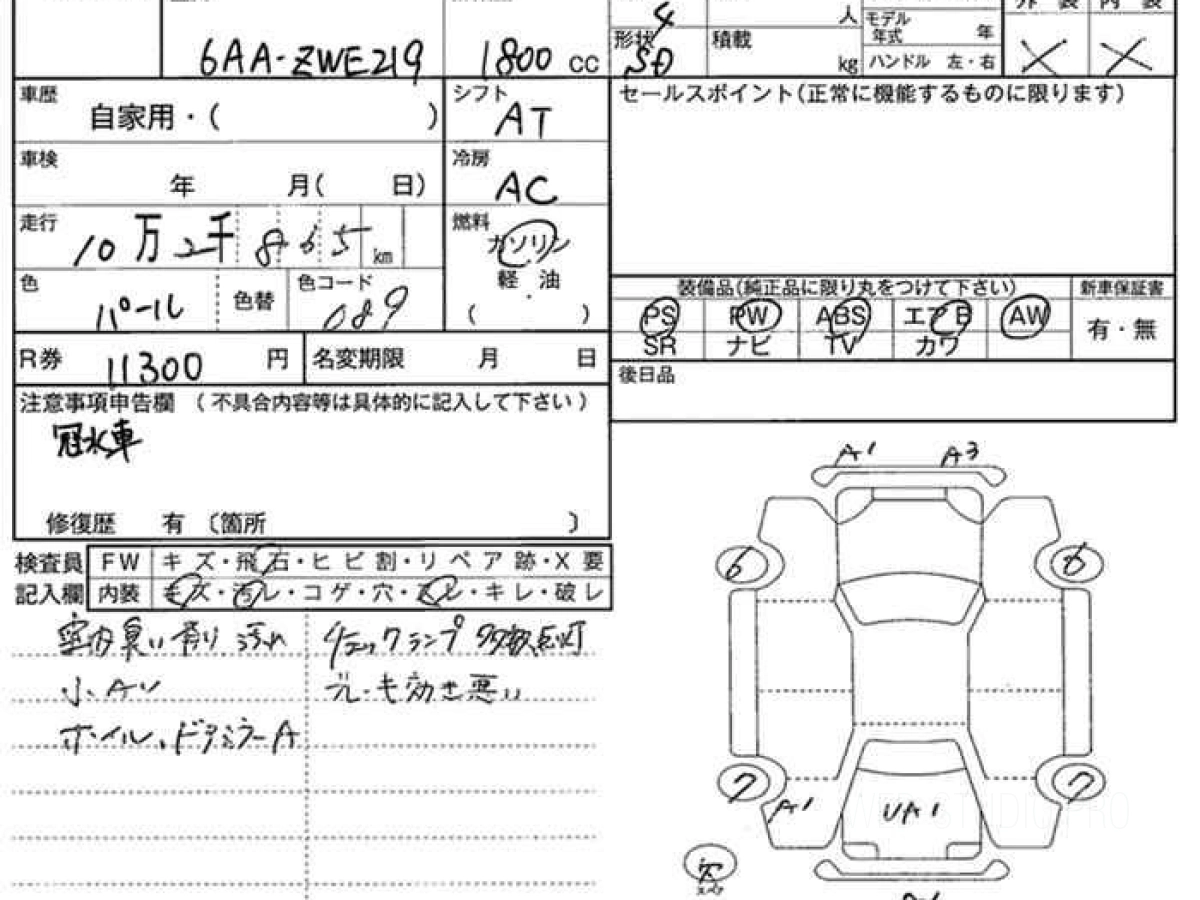 4
人
モデル 年式 年
6AA-ZWE219 1800 cc
形状 SD 積載 kg
ハンドル 左・右
車歴 自家用・( )
シフト AT
セールスポイント(正常に機能するものに限ります)
車検 年 月( 日)
冷房 AC
走行 10万2千865 km
燃料 ガソリン
軽・油
( )
色 パール 色替 色コード 089
装備品(純正品に限り丸をつけて下さい) 新車保証書
PS PW ABS エアB AW 有・無
SR ナビ TV カワ
R券 11300 円 名変期限 月 日
後日品
注意事項申告欄 (不具合内容等は具体的に記入して下さい)
冠水車
修復歴 有 〔箇所 〕
A1 A3
検査員 FW キズ・飛石・ヒビ割・リペア跡・X要
記入欄 内装 キズ・汚レ・コゲ・穴・スレ・キレ・破レ
6 6
室内臭い有り 汚れ チェックランプ多数点灯
小AU ブレーキ効き悪い
ホイール、ドアミラーA
7 7
A1 UA1
欠
スペア